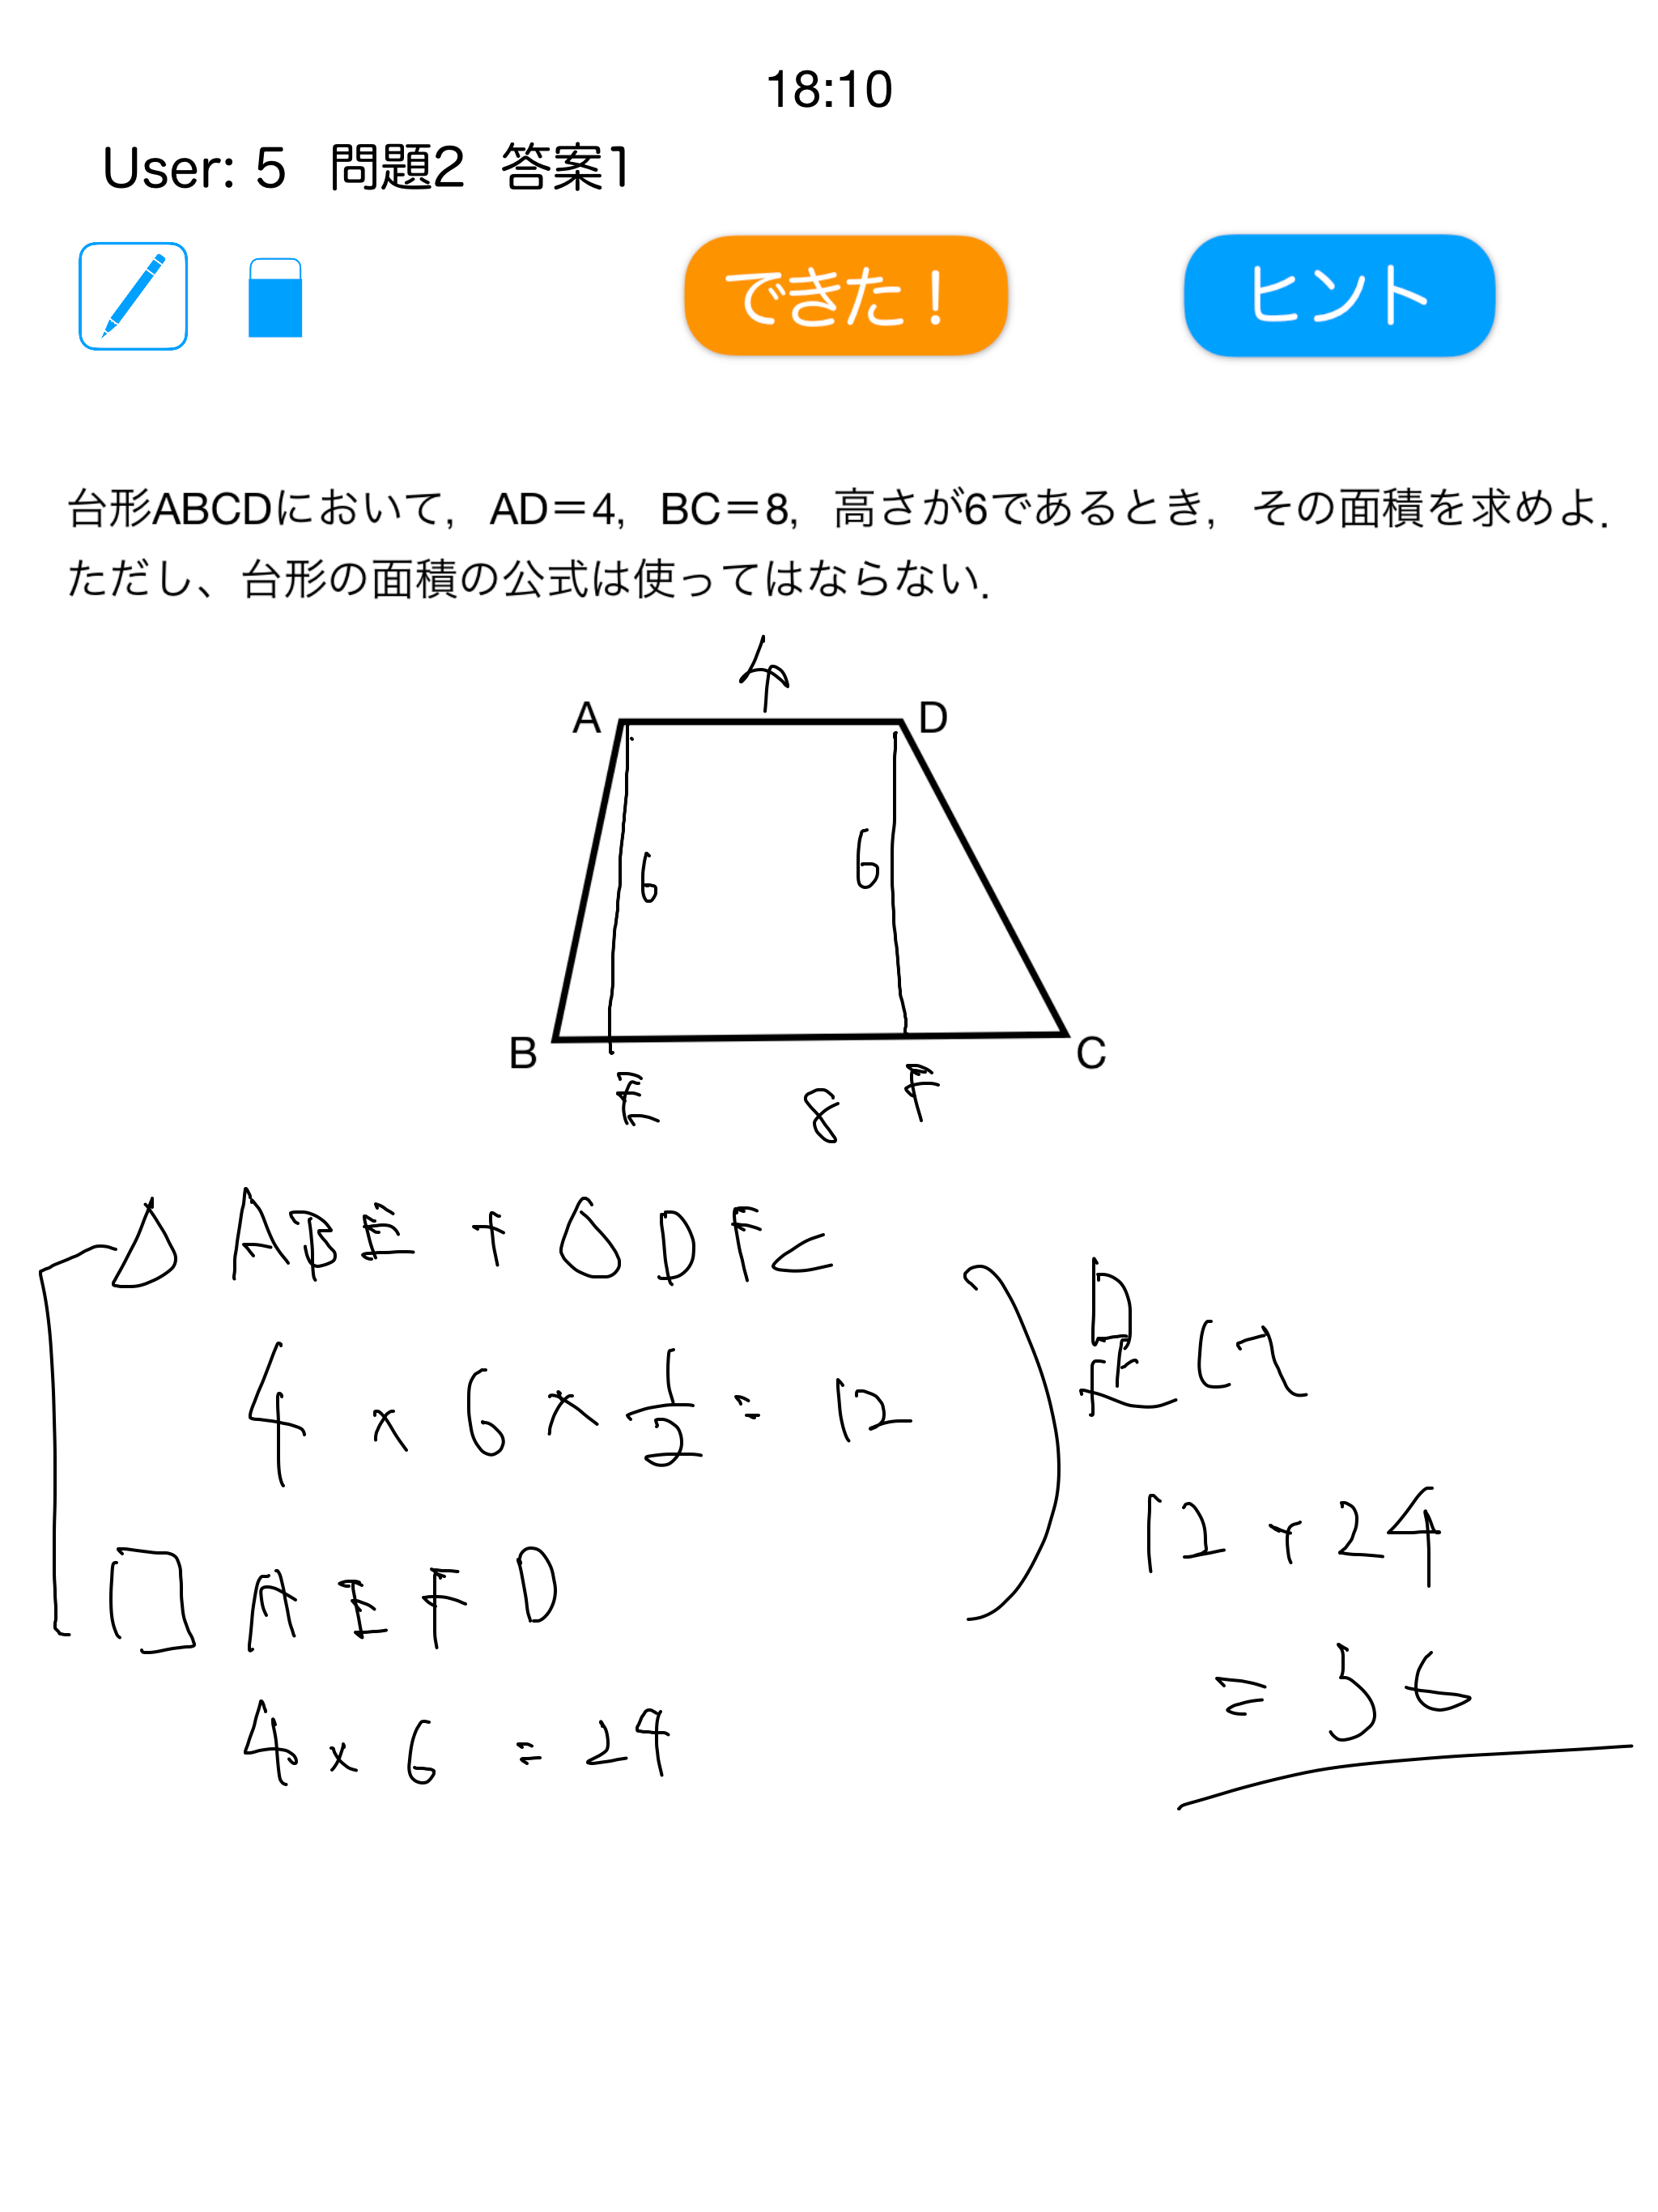 18:10
User: 5 問題2 答案1
できた！ ヒント
台形ABCDにおいて，AD＝4，BC＝8，高さが6であるとき，その面積を求めよ．
ただし、台形の面積の公式は使ってはならない．
4
A D
6 6
B C
E 8 F
△ABE + △DFC
4 × 6 × 1/2 = 12
□AEFD
4 × 6 = 24
12 + 24
= 36